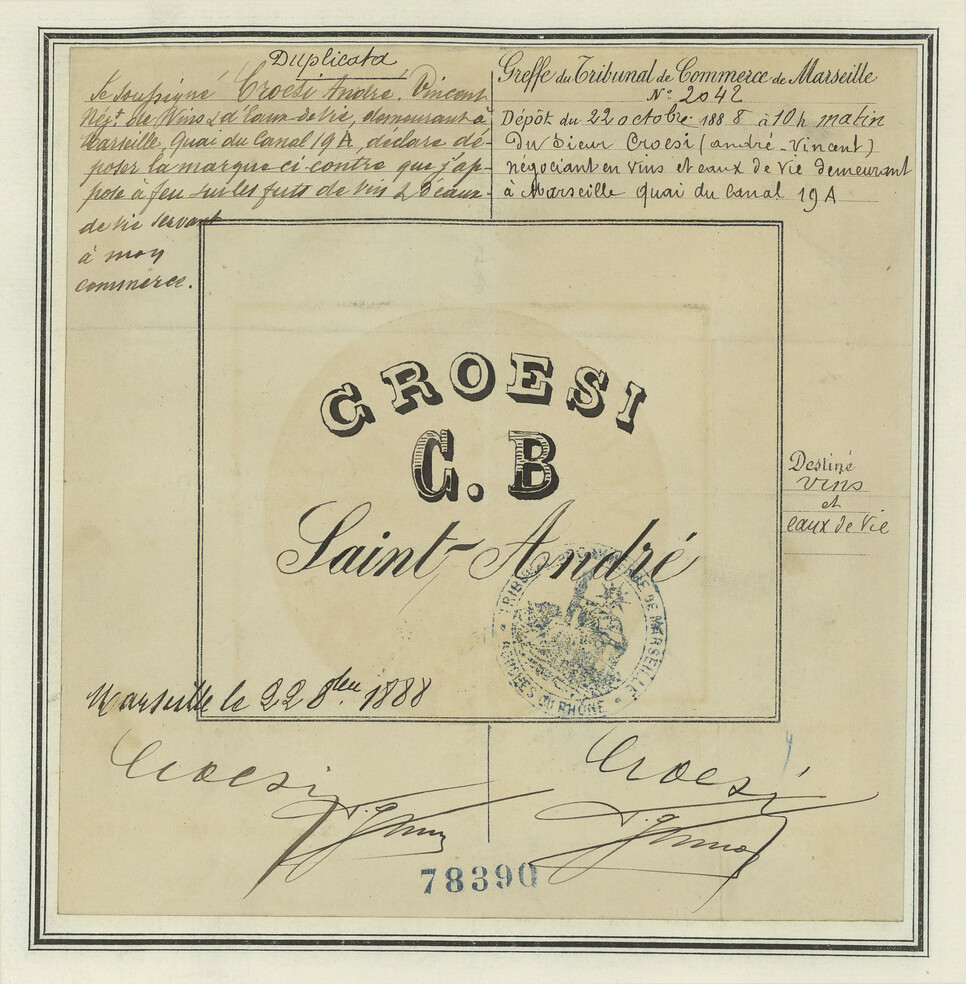 Duplicata
Je soussigné Croesi André. Vincent
Négt. de Vins & d'Eaux-de-Vie, demeurant à
Marseille, Quai du Canal 19 A, déclare dé-
poser la marque ci-contre que j'ap-
pose à feu sur les futs de vins & d'eaux-
de vie servant
à mon
commerce.
Greffe du Tribunal de Commerce de Marseille
N° 2042
Dépôt du 22 octobre 1888 à 10h matin
Du Sieur Croesi (andré-Vincent)
négociant en vins et eaux de vie demeurant
à Marseille quai du Canal 19 A
CROESI
C. B
Saint-André
Destiné
vins
et
eaux de Vie
TRIBUNAL DE COMMERCE DE MARSEILLE
BOUCHES DU RHÔNE
Marseille le 22 8bre 1888
Croesi
Croesi
78390